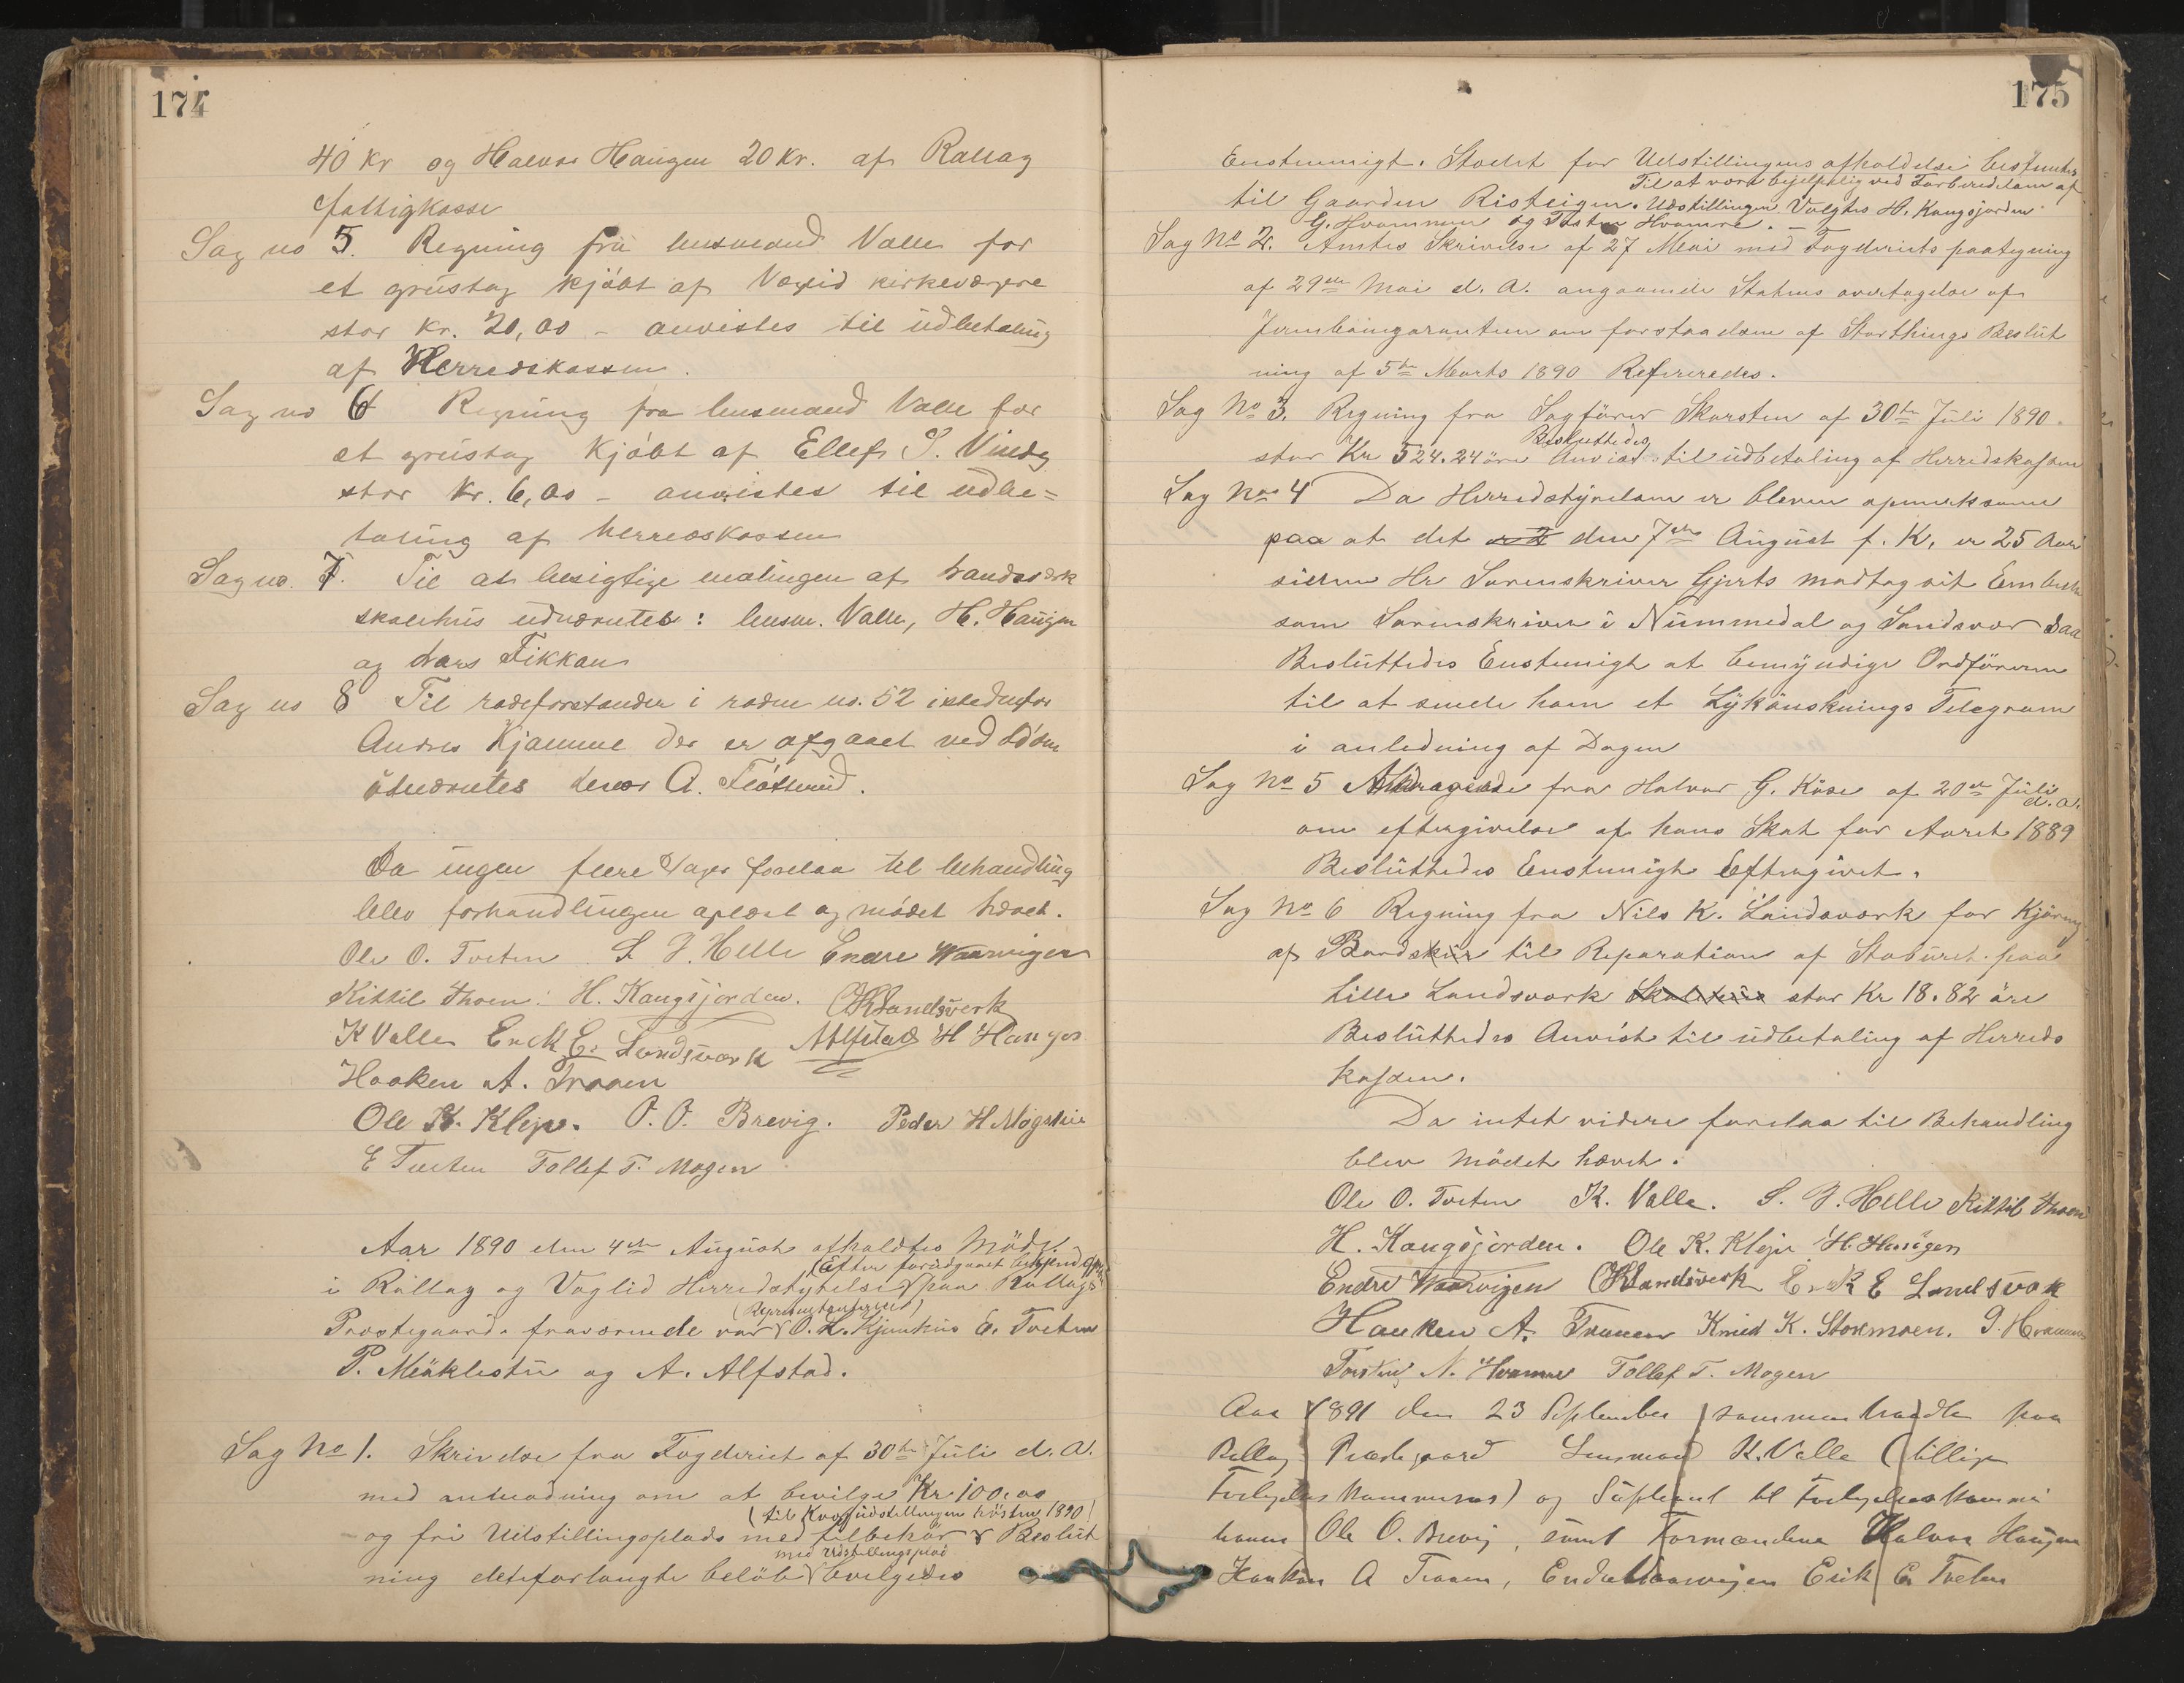 174
40 kr og Halvor Haugen 20 kr. af Rallag
fattigkasse
Sag no 5. Regning fra lensmand Valle for
et grustag kjøbt af Veglid kirkeværge
stor kr. 20,00 - anvistes til udbetaling
af Herredskassen.
Sag no 6 Regning fra lensmand Valle for
et grustag kjøbt af Ellef S. Vindeg
stor kr. 6,00 - anvistes til udbe=
taling af herredskassen
Sag no. 7. Til at besigtige malingen af Landsverk
skolehus udnævntes: lensm. Valle, H. Haugen
og Lars Fikkan
Sag no 8 Til rodeforstander i roden no. 52 istedenfor
Andres Kjømme der er afgaaet ved døden
udnævntes A.
Da ingen flere sager forelaa til behandling
blev forhandlingen oplæst og mødet hævet.
Ole O. Tveten S. J. Helle Endre Waarvigen
Kittil Thoen. H. Kongsjorden. OKLandsverk
K Valle Erik E. Landsværk AAlfstad H Haugen
Haaken A. Traaen
Ole K. Kleje. O. O. Brevig. Peder H Møgstue
E Tveten Tollef T. Mogen
Aar 1890 den 4de August afholdtes Möde
(Efter forudgaaet
i Rollag og Veglid Herredstyrelse paa Rollags
(Repræsentanterne)
Prestegaard. fraværende var O. L. Kjemhus E. Tveten
P. Mëüklestü og A. Alfstad.
Sag No 1. Skrivelse fra Fogderiet af 30te Juli d. A.
med anmodning om at bevilge Kr 100,00
(til Kvægudstillingen hösten 1890)
og fri Udstillingsplads med tilbehör Beslut
med Udstillingsplads
ning detforlangte belöb bevilgedes
175
Enstemmigt. Stedet for Udstillingens afholdelse bestemtes
Til at være behjelpelig ved Forberedelsen af
til Gaarden Risteigen. Udstillingen Valgtes H. Kongsjorden
G. Hvammen og Tosten Hvamre.
Sag No 2. Amtes Skrivelse af 27 Mai med Fogderiets paategning
af 29de Mai d. A. angaaende Statens overtagelse af
Jernbanegarantien om forstaaelsen af Storthings Beslut
ning af 5te Marts 1890 Refereredes.
Sag No 3. Regning fra Sagförer Skarsten af 30te Juli 1890.
Besluttedes
stor Kr 524.24 öre Anvist til udbetaling af Herredskassen
Sag No 4 Da Herredstyrelsen er bleven opmerksom
paa at det den 7de August f. K, er 25 Aar
siden Hr Sorenskriver Gjerts modtog sit Embede
som Sorenskriver i Nummedal og Sandsvær Saa
Besluttedes Enstemigt at bemyndige Ordföreren
til at sende ham et Lykönsknings Telegram
i anledning af Dagen
Sag No 5 Andragende fra Halvor G. Köse af 20de Juli
d. A.
om eftergivelse af hans Skat for Aaret 1889
Besluttedes Enstemigt Eftergivet.
Sag No 6 Regning fra Nils K. Landsverk for Kjöring
af Bord til Reparation af Staburet paa
Lille Landsverk stor Kr 18.82 öre
Besluttedes Anvist til udbetaling af Herreds
kassen.
Da intet videre forelaa til Behandling
blev Mödet hævet.
Ole O. Tveten K. Valle. S. J. Helle Kittil Thoen
H. Kongsjorden. Ole K. Kleje H. Haugen
Endre Waarvigen OKLandsverk Erik E Landsværk
Haaken A. Traaen Knud K. Stormoen. G. Hvammen
Torsten N. Hvamre Tollef T. Mogen
Aar 1891 den 23 September sammentraadte paa
Rollag Prestegaard Lensmand K. Valle (tillige
Forligelses kommissær) og Supleant til Forligelseskommis
Ole O. Brevig, samt Formændene Halvor Haugen
Haakon A Traaen, Endre Waarvigen Erik E. Tveten